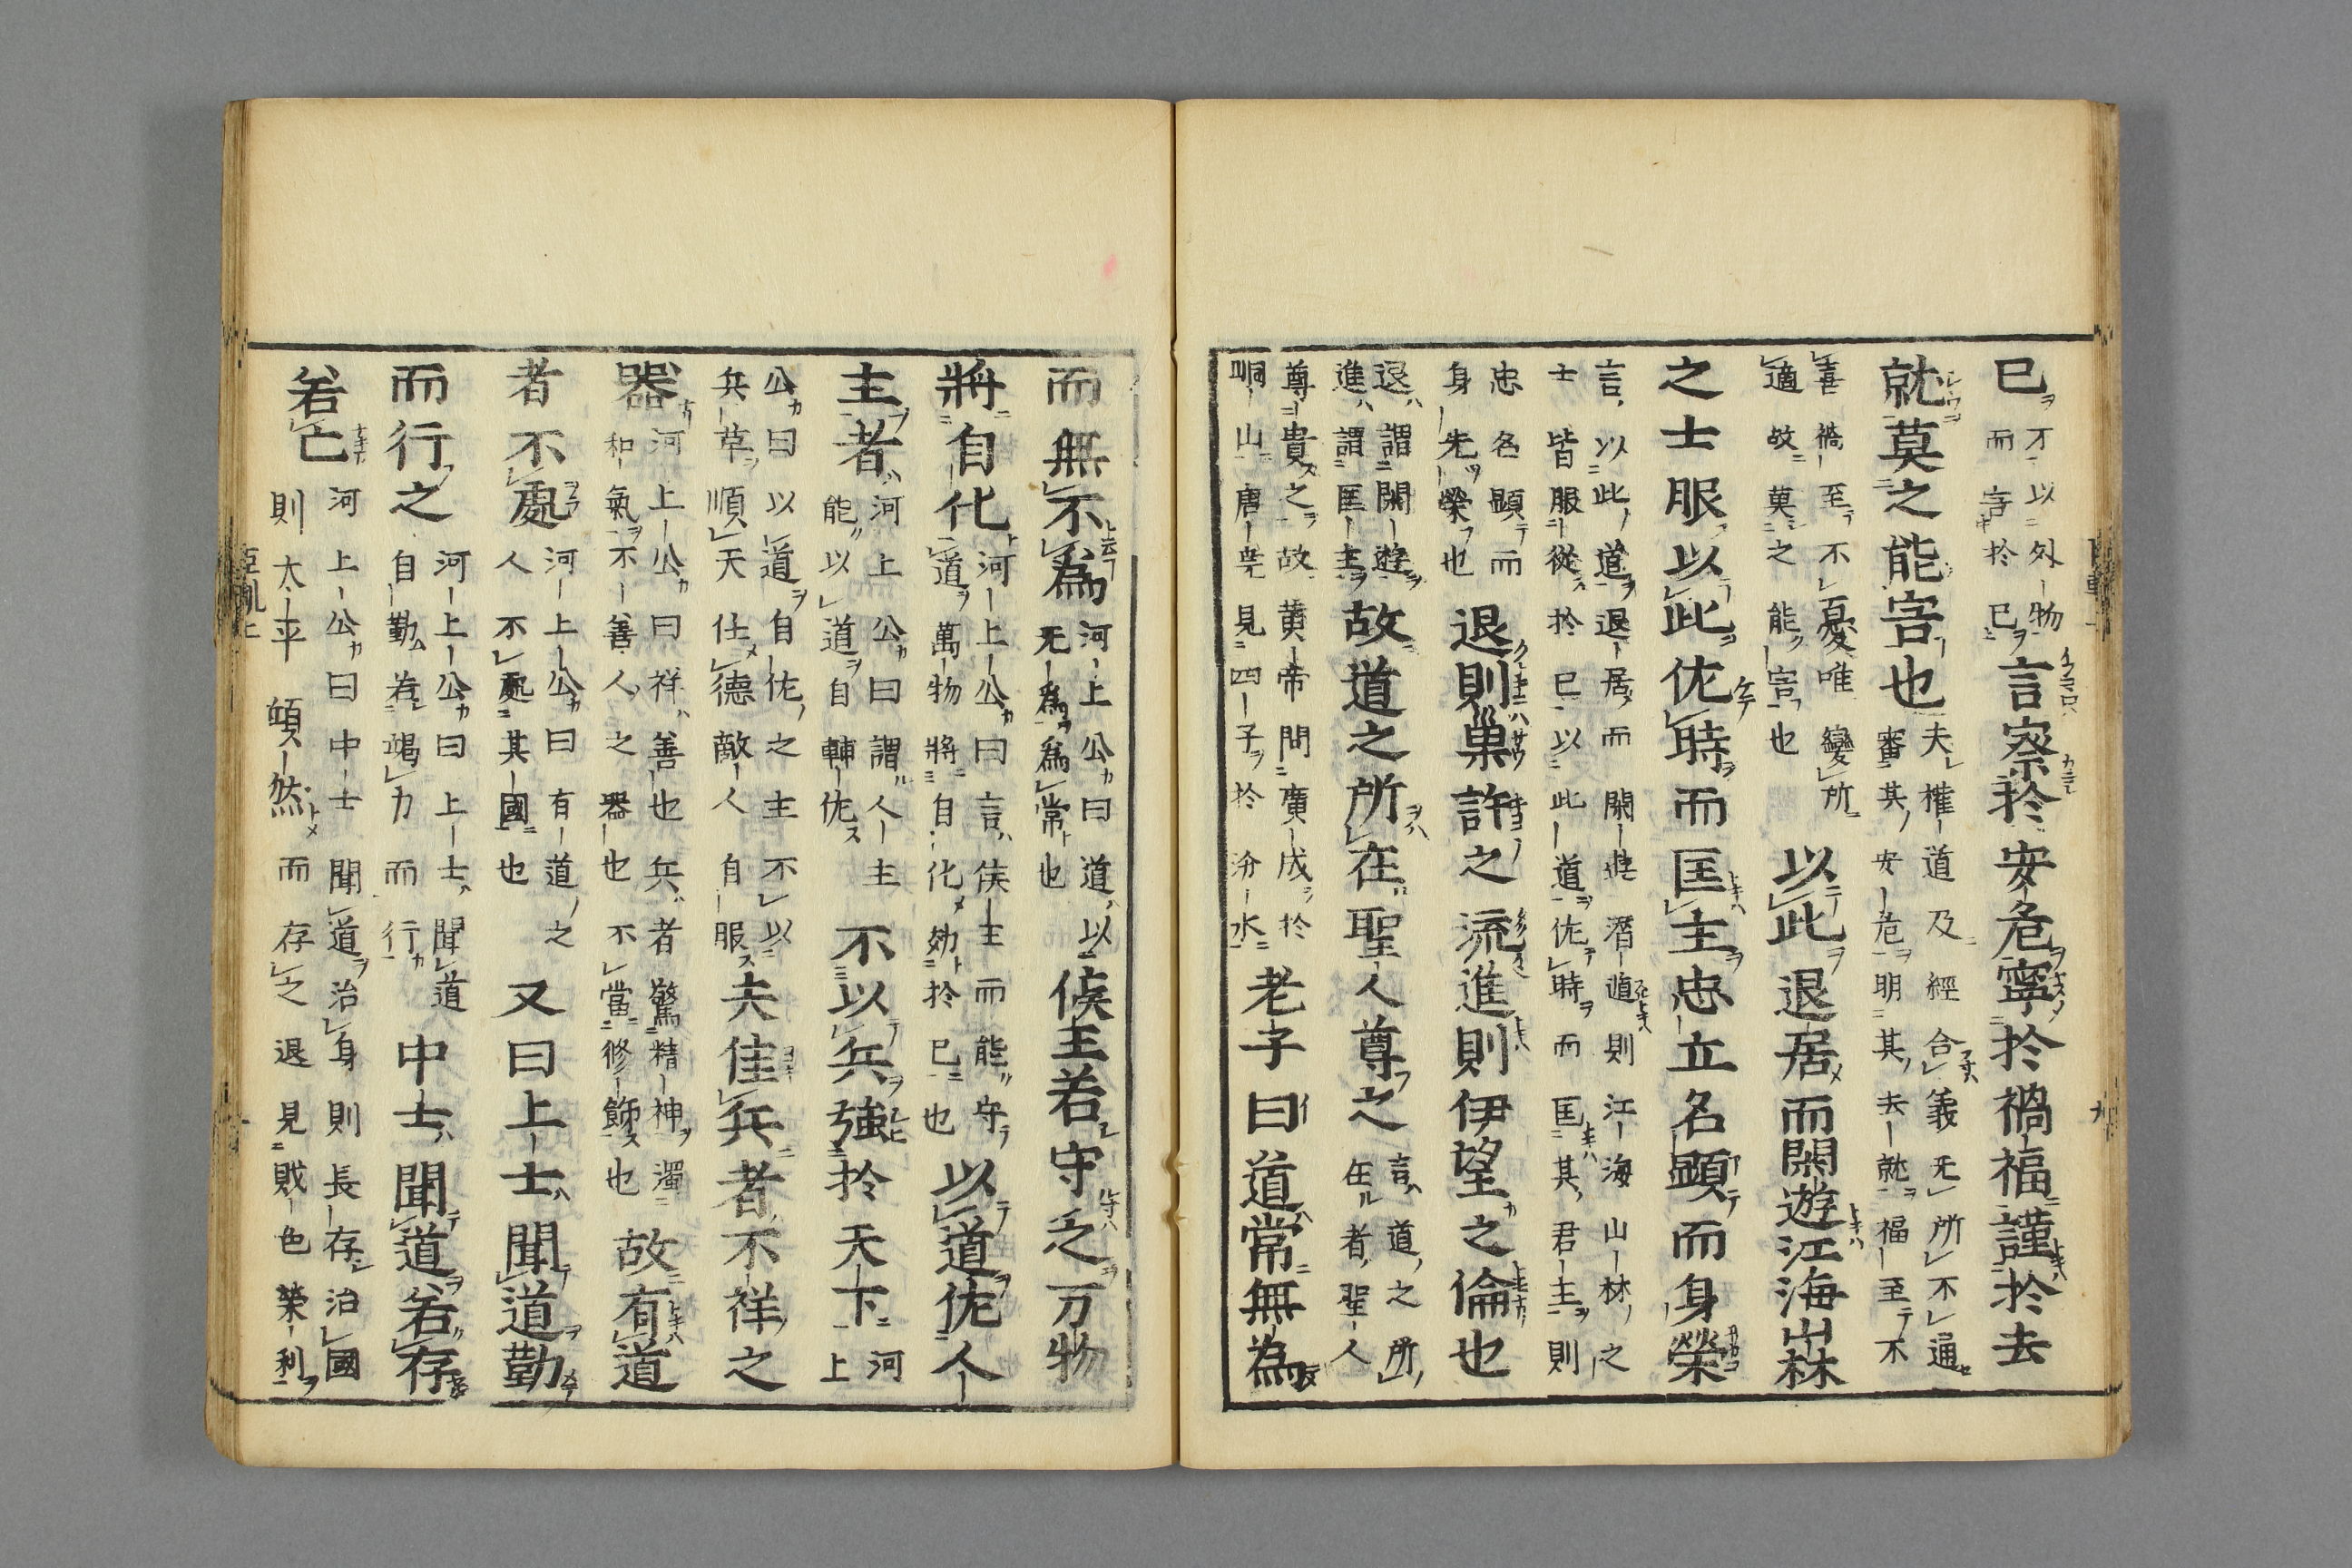 已
不以外物
而害於已
言察於安危寧於禍福謹於去
就莫之能害也
夫權道及經合義无所不通
審其安危明其去就福至不
喜禍至不憂唯變所
適故莫之能害也
以此退居而閑遊江海山林
之士服以此佐時而匡主忠立名顯而身榮
言以此道退居而閑遊潛遁則江海山林之
士皆服從於已以此道佐時而匡其君主則
忠名顯而
身先榮也
退則巢許之流進則伊望之倫也
退謂閑遊
進謂匡主
故道之所在聖人尊之
言道之所
在者聖人
尊貴之故黄帝問廣成於
峒山唐堯見四子於汾水
老子曰道常無為
而無不爲
河上公曰道以
无爲爲常也
侯王若守之万物
將自化
河上公曰言侯主而能守
道萬物將自化効於已也
以道佐人
主者
河上公曰謂人主
能以道自輔佐
不以兵強於天下
河
上
公曰以道自佐之主不以
兵革順天任德敵人自服
夫佳兵者不祥之
器
河上公曰祥善也兵者驚精神濁
和氣不善人之器也不當修飾也
故有道
者不處
河上公曰有道之
人不處其國也
又曰上士聞道勤
而行之
河上公曰上士聞道
自勤若竭力而行
中士聞道若存
若亡
河上公曰中士聞道治身則長存治國
則太平然而存之退見財色榮利
臣軌上